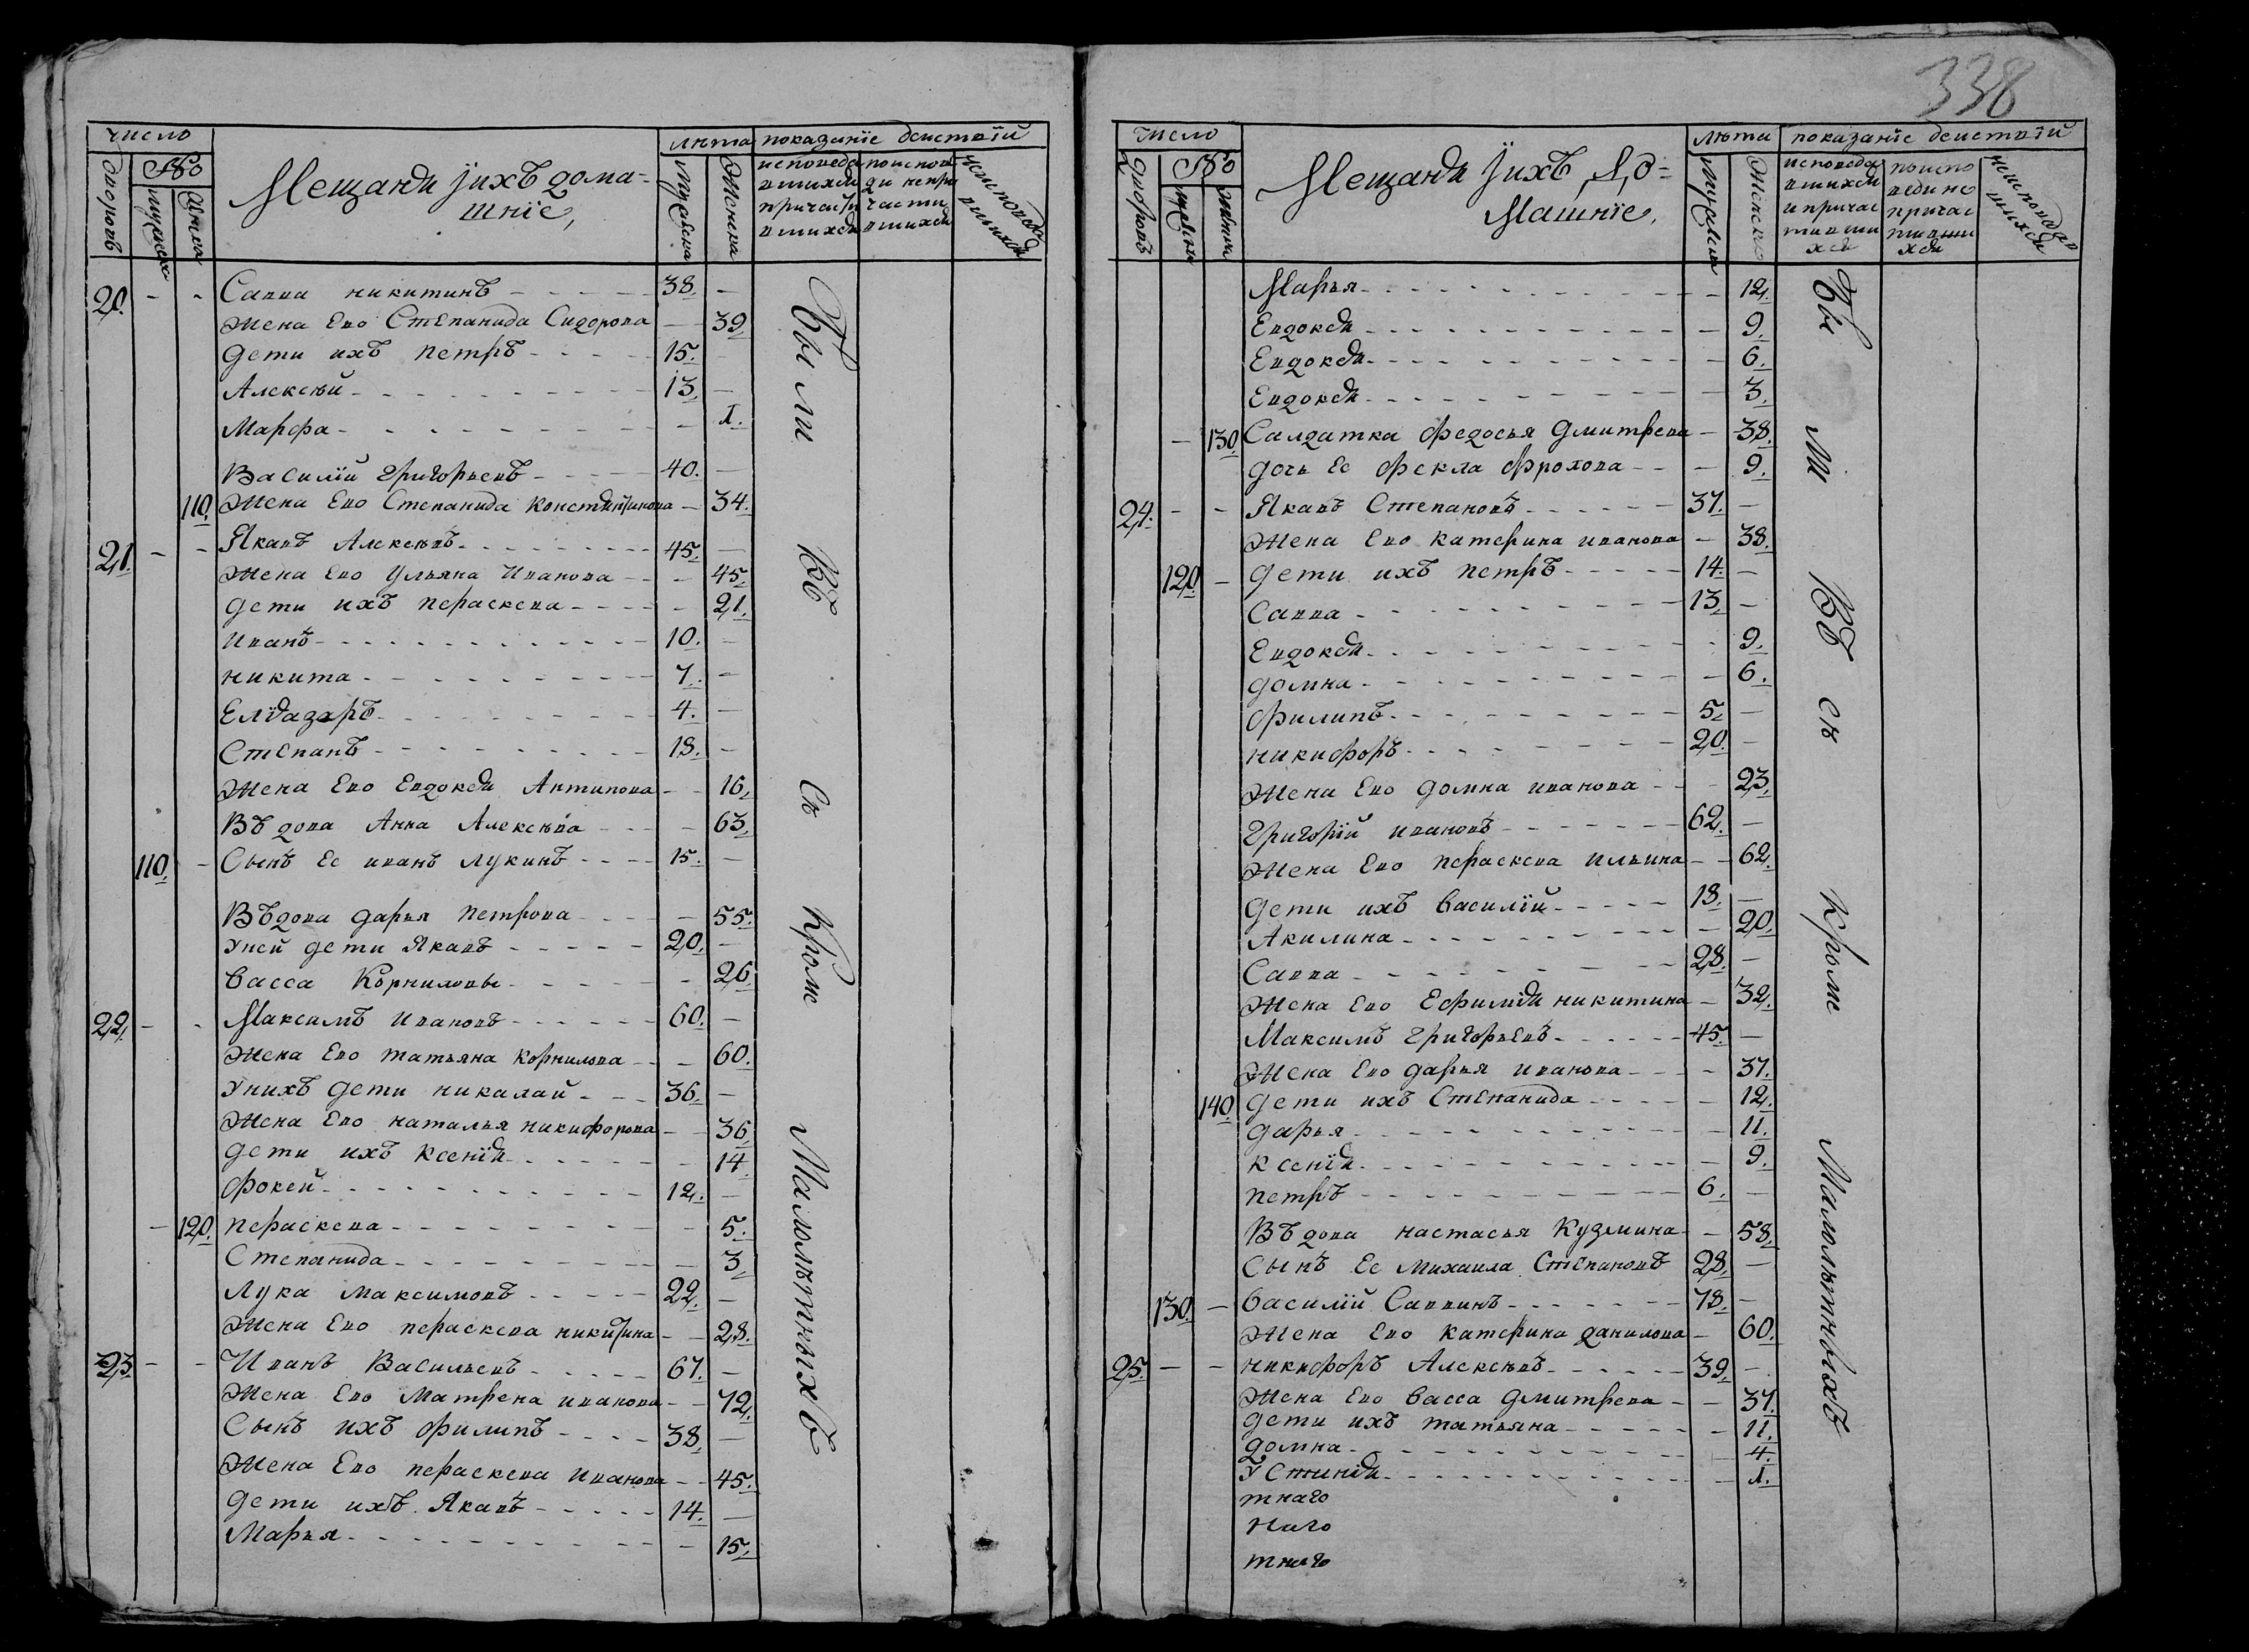 338
число
дворовъ
люд
мужеска
женска
Мещаня ѹихъ дома=
шніе,
лѣта
мужеска
женска
показаніе деиствіи
исповеда
вшихся
причасти
вшихся
поиспов
ди непри
части
вшихся
неисповеда
вшихся
20. - - Савва никитинъ - 38. -
жена Ево Степанида Сидорова - 39.
дети ихъ петръ - 15. -
Алексѣй - 13. -
Марфа - 1.
Василій григорьевъ - 40. -
110. жена Ево Степанида константинова - 34.
21. - - Якавъ Алексѣвъ - 45. -
жена Ево Ульяна Иванова - 45.
дети ихъ параскева - 21.
иванъ - 10. -
никита - 7. -
Еліазаръ - 4. -
Степанъ - 18. -
жена Ево Евдокея Антипова - 16.
Въдова Анна Алексѣва - 63.
110. - Сынъ Ее иванъ лукинъ - 15. -
Въдова дарья петрова - 55.
Уней дети Якавъ - 20. -
васса Корниловы - 26.
22. - - Максимъ ивановъ - 60. -
жена Ево татьяна корнилова - 60.
Унихъ дети никалай - 36. -
жена Ево наталья никифорова - 36.
дети ихъ ксенія - 14.
фокей - 12. -
- 120. пераскева - 5.
Степанида - 3.
лука максимовъ - 22. -
жена Ево пераскева никитина - 28.
23. - - Иванъ Васильевъ - 67. -
жена Ево матрена иванова - 72.
Сынъ ихъ филипъ - 38. -
жена Ево пераскева иванова - 45.
дети ихъ Якавъ - 14. -
Марья - 15.
Были Въ Съ Кроме Малолѣтныхъ
число
дворовъ
мужеска
женска
Мещаня ѹихъ До=
Машніе,
лѣта
мужеска
женска
показаніе деиствіи
исповеда
вшихся
и причас
тивши
хся
поиспо
веди не
причас
тивши
хся
неисповеда
вшихся
Марья - 12.
Евдокея - 9.
Евдокея - 6.
Евдокея - 3.
- 130. Салдатка федосья дмитрева - 38.
дочь Ее фекла фролова - 9.
24. - - Якавъ Степановъ - 37. -
жена Ево катерина иванова - 38.
120. - дети ихъ петръ - 14. -
Савва - 13. -
Евдокея - 9.
домна - 6.
филипъ - 5. -
никифоръ - 20. -
жена Ево домна иванова - 23.
григорій ивановъ - 62. -
жена Ево пераскева ильина - 62.
дети ихъ василій - 18. -
Акилина - 20.
Савва - 28. -
жена Ево Ефимія никитина - 32.
Максимъ григорьевъ - 45. -
жена Ево дарья иванова - 37.
140. дети ихъ Степанида - 12.
дарья - 11.
ксенія - 9.
петръ - 6. -
Въдова настасья Кузмина - 58.
Сынъ Ее михаила Степановъ 28. -
130. - василій Саввинъ - 78. -
жена Ево катерина данилова - 60.
25. - - никифоръ Алексѣвъ - 39. -
жена Ево васса дмитрева - 37.
дети ихъ татьяна - 11.
домна - 4.
Устинія - 1.
тнаго
наго
тнаго
Бы ли Въ съ Кроме Малолѣтныхъ